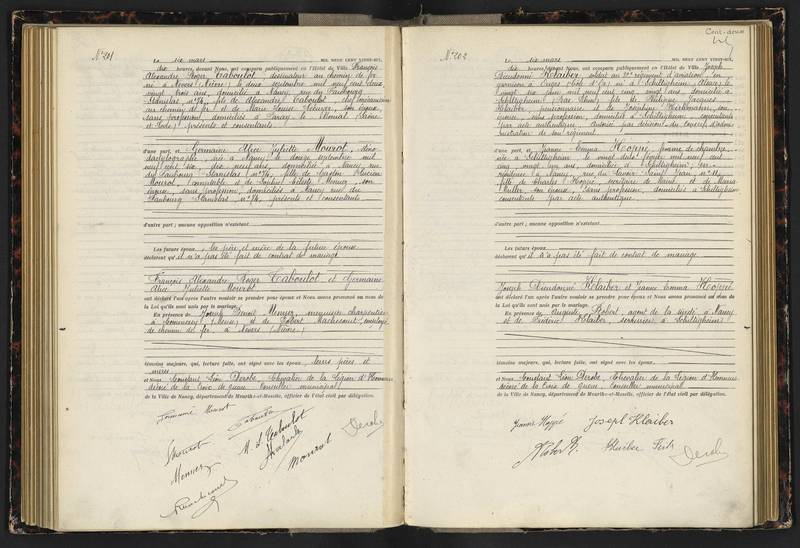 Cent-deux
N° 201
Le six mars MIL NEUF CENT VINGT-SIX,
dix heures, devant Nous, ont comparu publiquement en l'Hôtel de Ville François
Alexandre Roger Taboulot, dessinateur au chemin de fer
né à Nevers (Nièvre) le deux septembre mil neuf cent deux,
vingt trois ans, domicilié à Nancy, rue du Faubourg
Stanislas n° 74, fils de Alexandre Taboulot, chef
au chemin de fer et de Marie Louise, son épouse,
sans profession, domiciliés à Paray le Monial (Saône
et Loire) présents et consentants
d'une part, et Germaine Alice Juliette Mourot, sténo
dactylographe, née à Nancy le douze septembre mil
neuf cent six, dix neuf ans, domiciliée à Nancy, rue
du Faubourg Stanislas n° 74, fille de Gaston Lucien
Mourot, comptable et de Menier, son
épouse, sans profession, domiciliés à Nancy rue du
Faubourg Stanislas, n° 74, présents et consentants
d'autre part ; aucune opposition n'existant
Les futurs époux, les père et mère de la future épouse
déclarent qu'il n'a pas été fait de contrat de mariage
François Alexandre Roger Taboulot et Germaine
Alice Juliette Mourot
ont déclaré l'un après l'autre vouloir se prendre pour époux et Nous avons prononcé au nom de
la Loi qu'ils sont unis par le mariage.
En présence de Joseph Benoit Menier, menuisier charpentier
à Commercy (Meuse) et de Robert Marchecourt, employé
de chemin de fer à Nevers (Nièvre)
témoins majeurs, qui, lecture faite, ont signé avec les époux, leurs pères et
mères
et Nous Constant Léon Derobe, Chevalier de la Légion d'Honneur
décoré de la Croix de guerre, Conseiller municipal
de la Ville de Nancy, département de Meurthe-et-Moselle, officier de l'état civil par délégation.
Germaine Mourot
Taboulot
Mourot
M. L. Taboulot
Menier
Mourot
Derobe
N° 202
Le six mars MIL NEUF CENT VINGT-SIX,
dix heures, devant Nous, ont comparu publiquement en l'Hôtel de Ville Joseph
Dieudonné Klaiber, soldat au régiment d'aviation, en
garnison à né à Schiltigheim (Alsace) le
vingt six mil neuf cent cinq vingt ans domicilié à
Schiltigheim (Bas Rhin) fils de Philippe Jacques
Klaiber, pensionnaire et de Joséphine son
épouse, sans profession, domiciliés à Schiltigheim, consentants
par acte authentique. Autorisé par décision du Conseil d'admi-
nistration de son régiment
d'une part, et Jeanne Emma Hoppé, femme de chambre,
née à Schiltigheim le vingt deux février mil neuf cent
cinq vingt un ans, domiciliée à Schiltigheim, en
résidence à Nancy, rue du n° 11,
fille de Charles Hoppé, secrétaire de mairie et de Maria
Muller, son épouse, sans profession, domiciliés à Schiltigheim
consentants par acte authentique.
d'autre part ; aucune opposition n'existant
Les futurs époux
déclarent qu'il n'a pas été fait de contrat de mariage
Joseph Dieudonné Klaiber et Jeanne Emma Hoppé
ont déclaré l'un après l'autre vouloir se prendre pour époux et Nous avons prononcé au nom de
la Loi qu'ils sont unis par le mariage.
En présence de Auguste Robert agent de la sûreté à Nancy
et de Frédéric Klaiber, serrurier à Schiltigheim
témoins majeurs, qui, lecture faite, ont signé avec les époux,
et Nous Constant Léon Derobe, Chevalier de la Légion d'Honneur
décoré de la Croix de guerre, Conseiller municipal
de la Ville de Nancy, département de Meurthe-et-Moselle, officier de l'état civil par délégation.
Jeanne Hoppé
Joseph Klaiber
Klaiber
Derobe